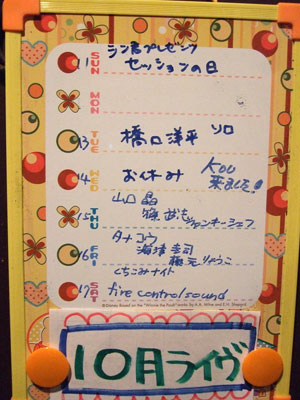 11 SUN ラン君プレゼンツ
セッションの日
MON
13 TUE 橋口洋平 ソロ
14 WED お休み KOU
来ました!
15 THU 山口 晶
ジャンオーシェフ
16 FRI タナコウ
海津 圭司
りょうこ
くちこみナイト
17 SAT fire control sound
©Disney Based on the "Winnie the Pooh" works, by A.A. Milne and E.H. Shepard
10月ライヴ